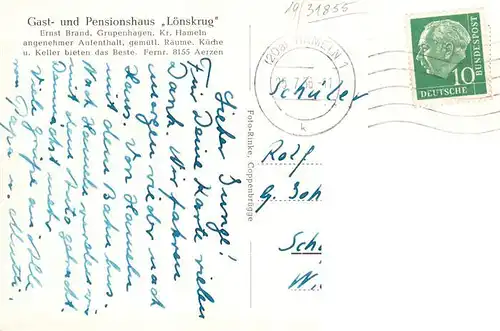 Gast- und Pensionshaus „Lönskrug"
Ernst Brand, Grupenhagen, Kr. Hameln
angenehmer Aufenthalt, gemütl. Räume. Küche
u. Keller bieten das Beste. Fernr. 8155 Aerzen
Lieber Junge!
Für Deine Karte vielen
Dank. Wir fahren
morgen wieder nach
Haus. Von Hameln
mit dem Bahnbus.
Nach Hameln werden wir
mit dem Auto gebracht.
Demnächst mehr
Viele Grüße an Alle
von Papa u. Mutti.
Foto-Rinke, Coppenbrügge
19/31855
(20a) HAMELN 1
k
DEUTSCHE
BUNDESPOST
10
Schüler
Rolf
Sch